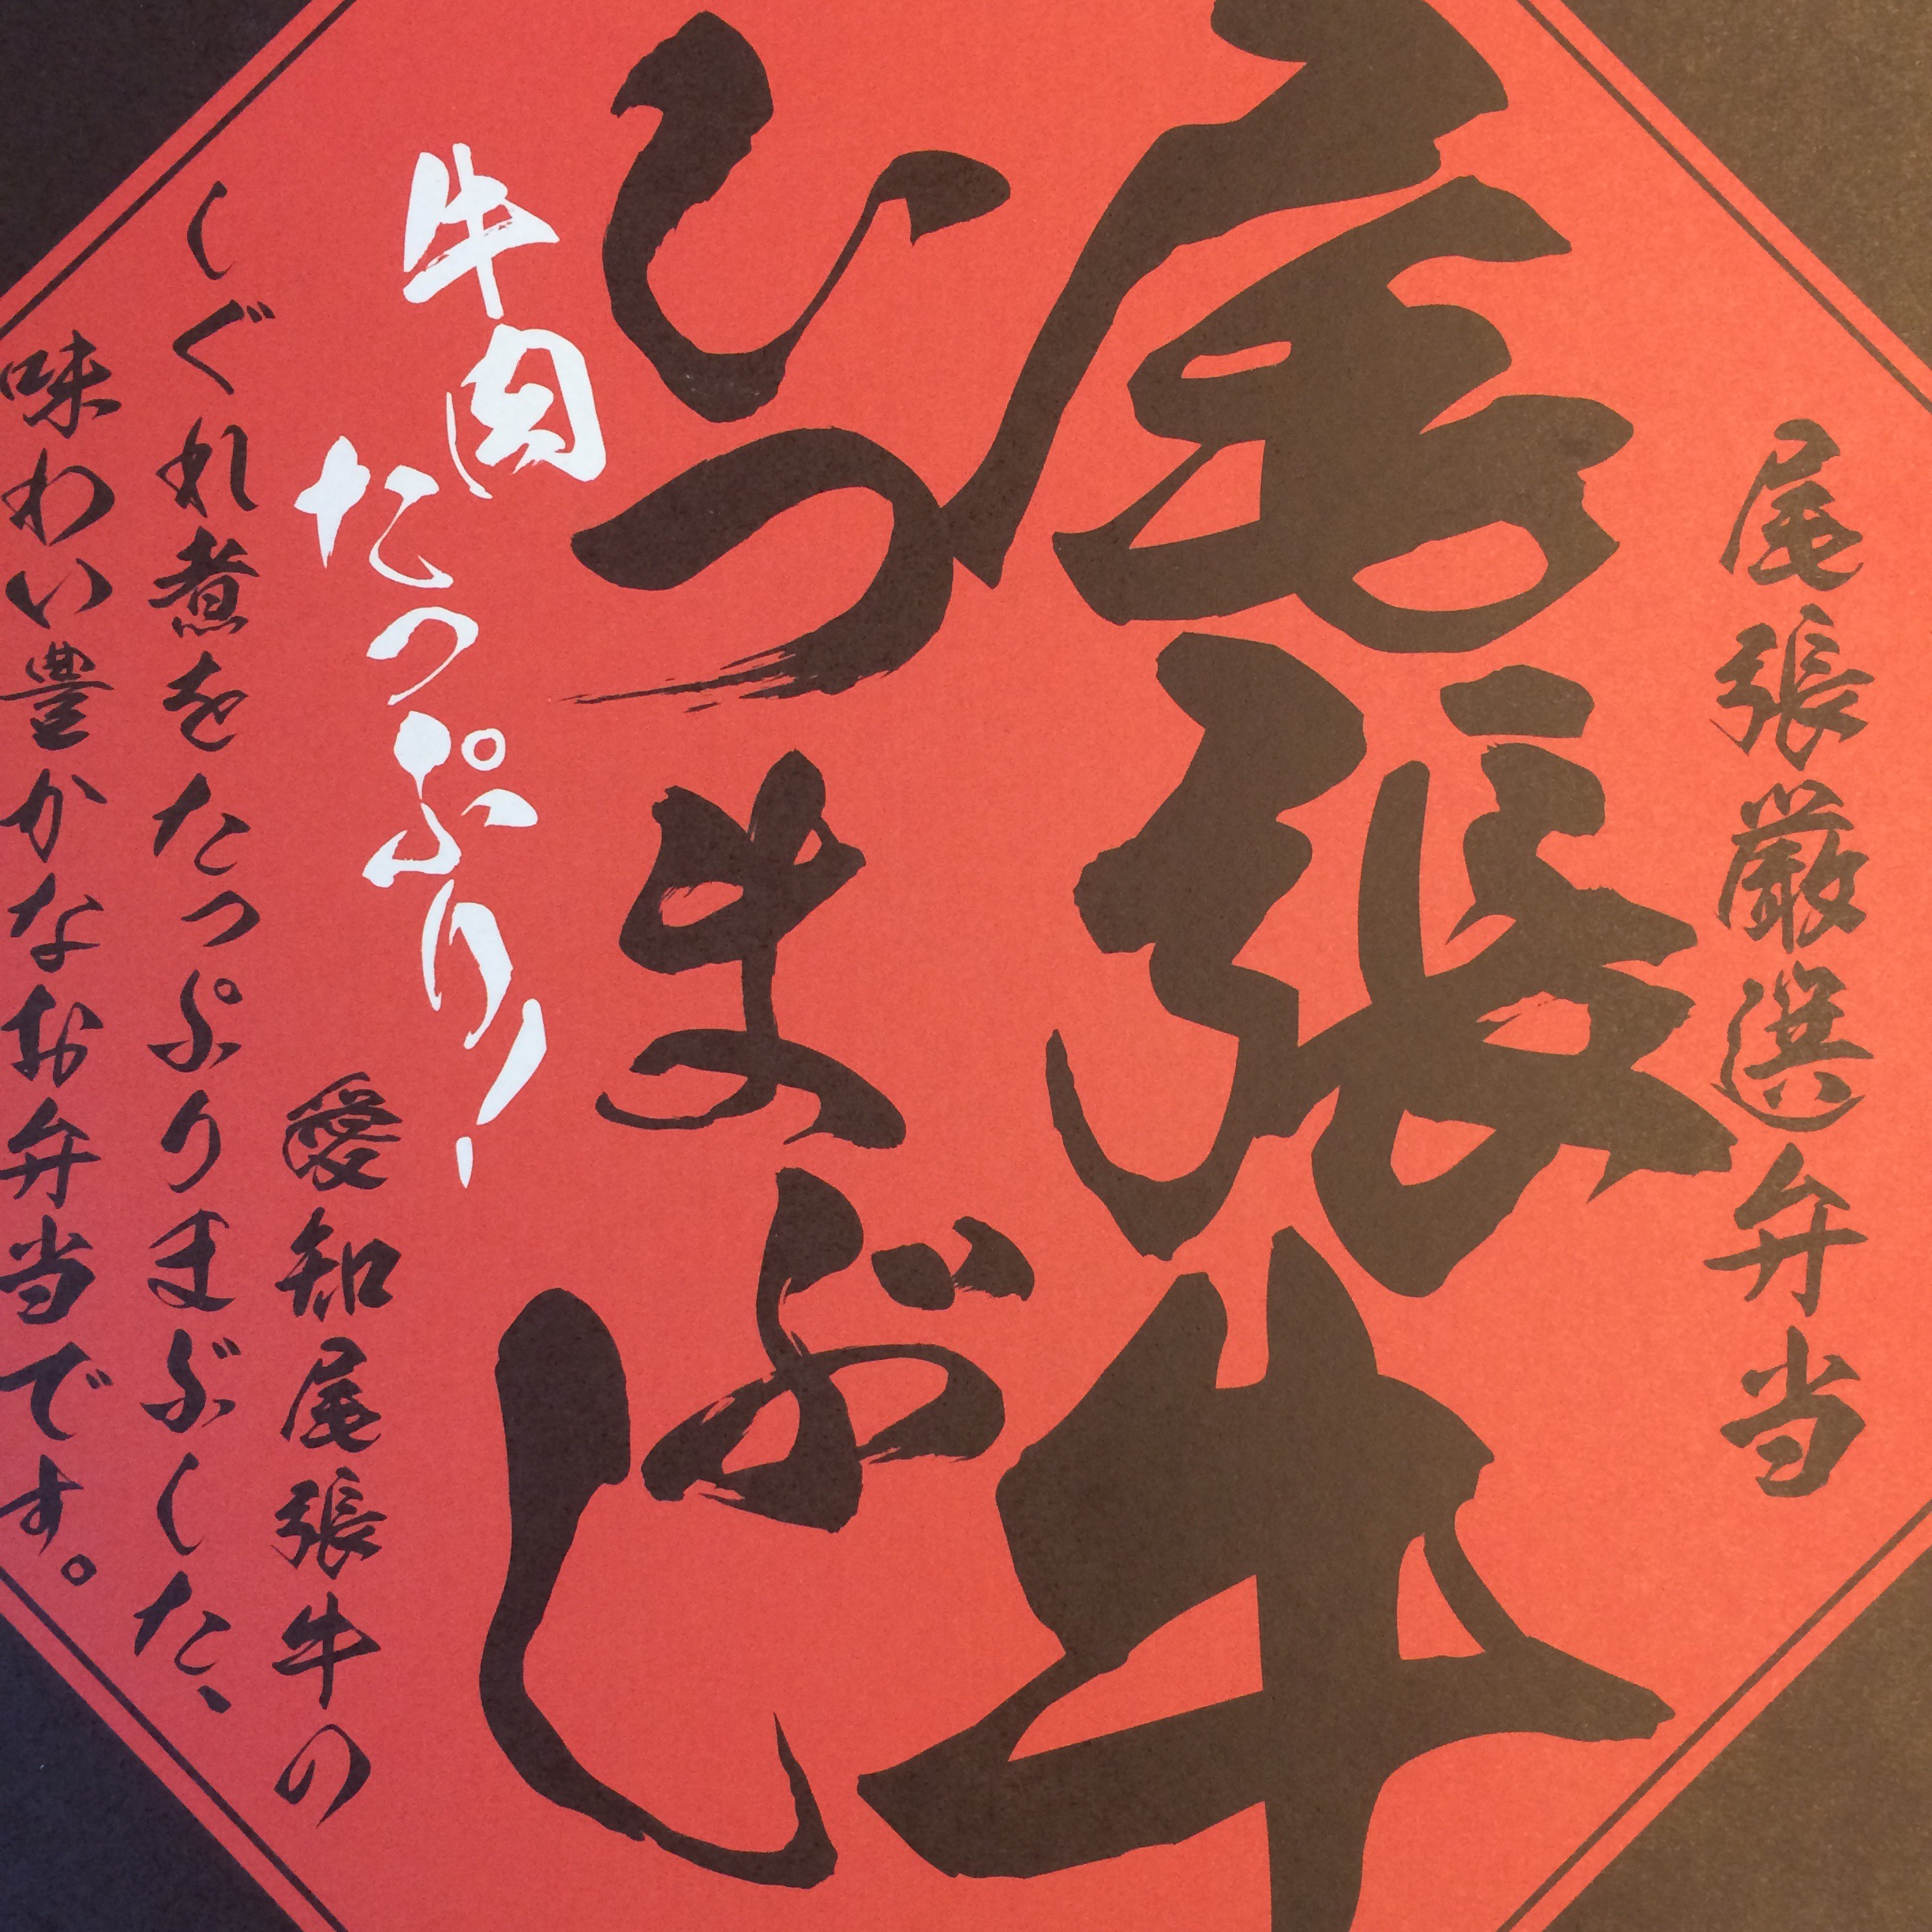 尾張厳選弁当
尾張牛
ひつまぶし
牛肉
たっぷり!
愛知尾張牛の
しぐれ煮をたっぷりまぶした、
味わい豊かなお弁当です。